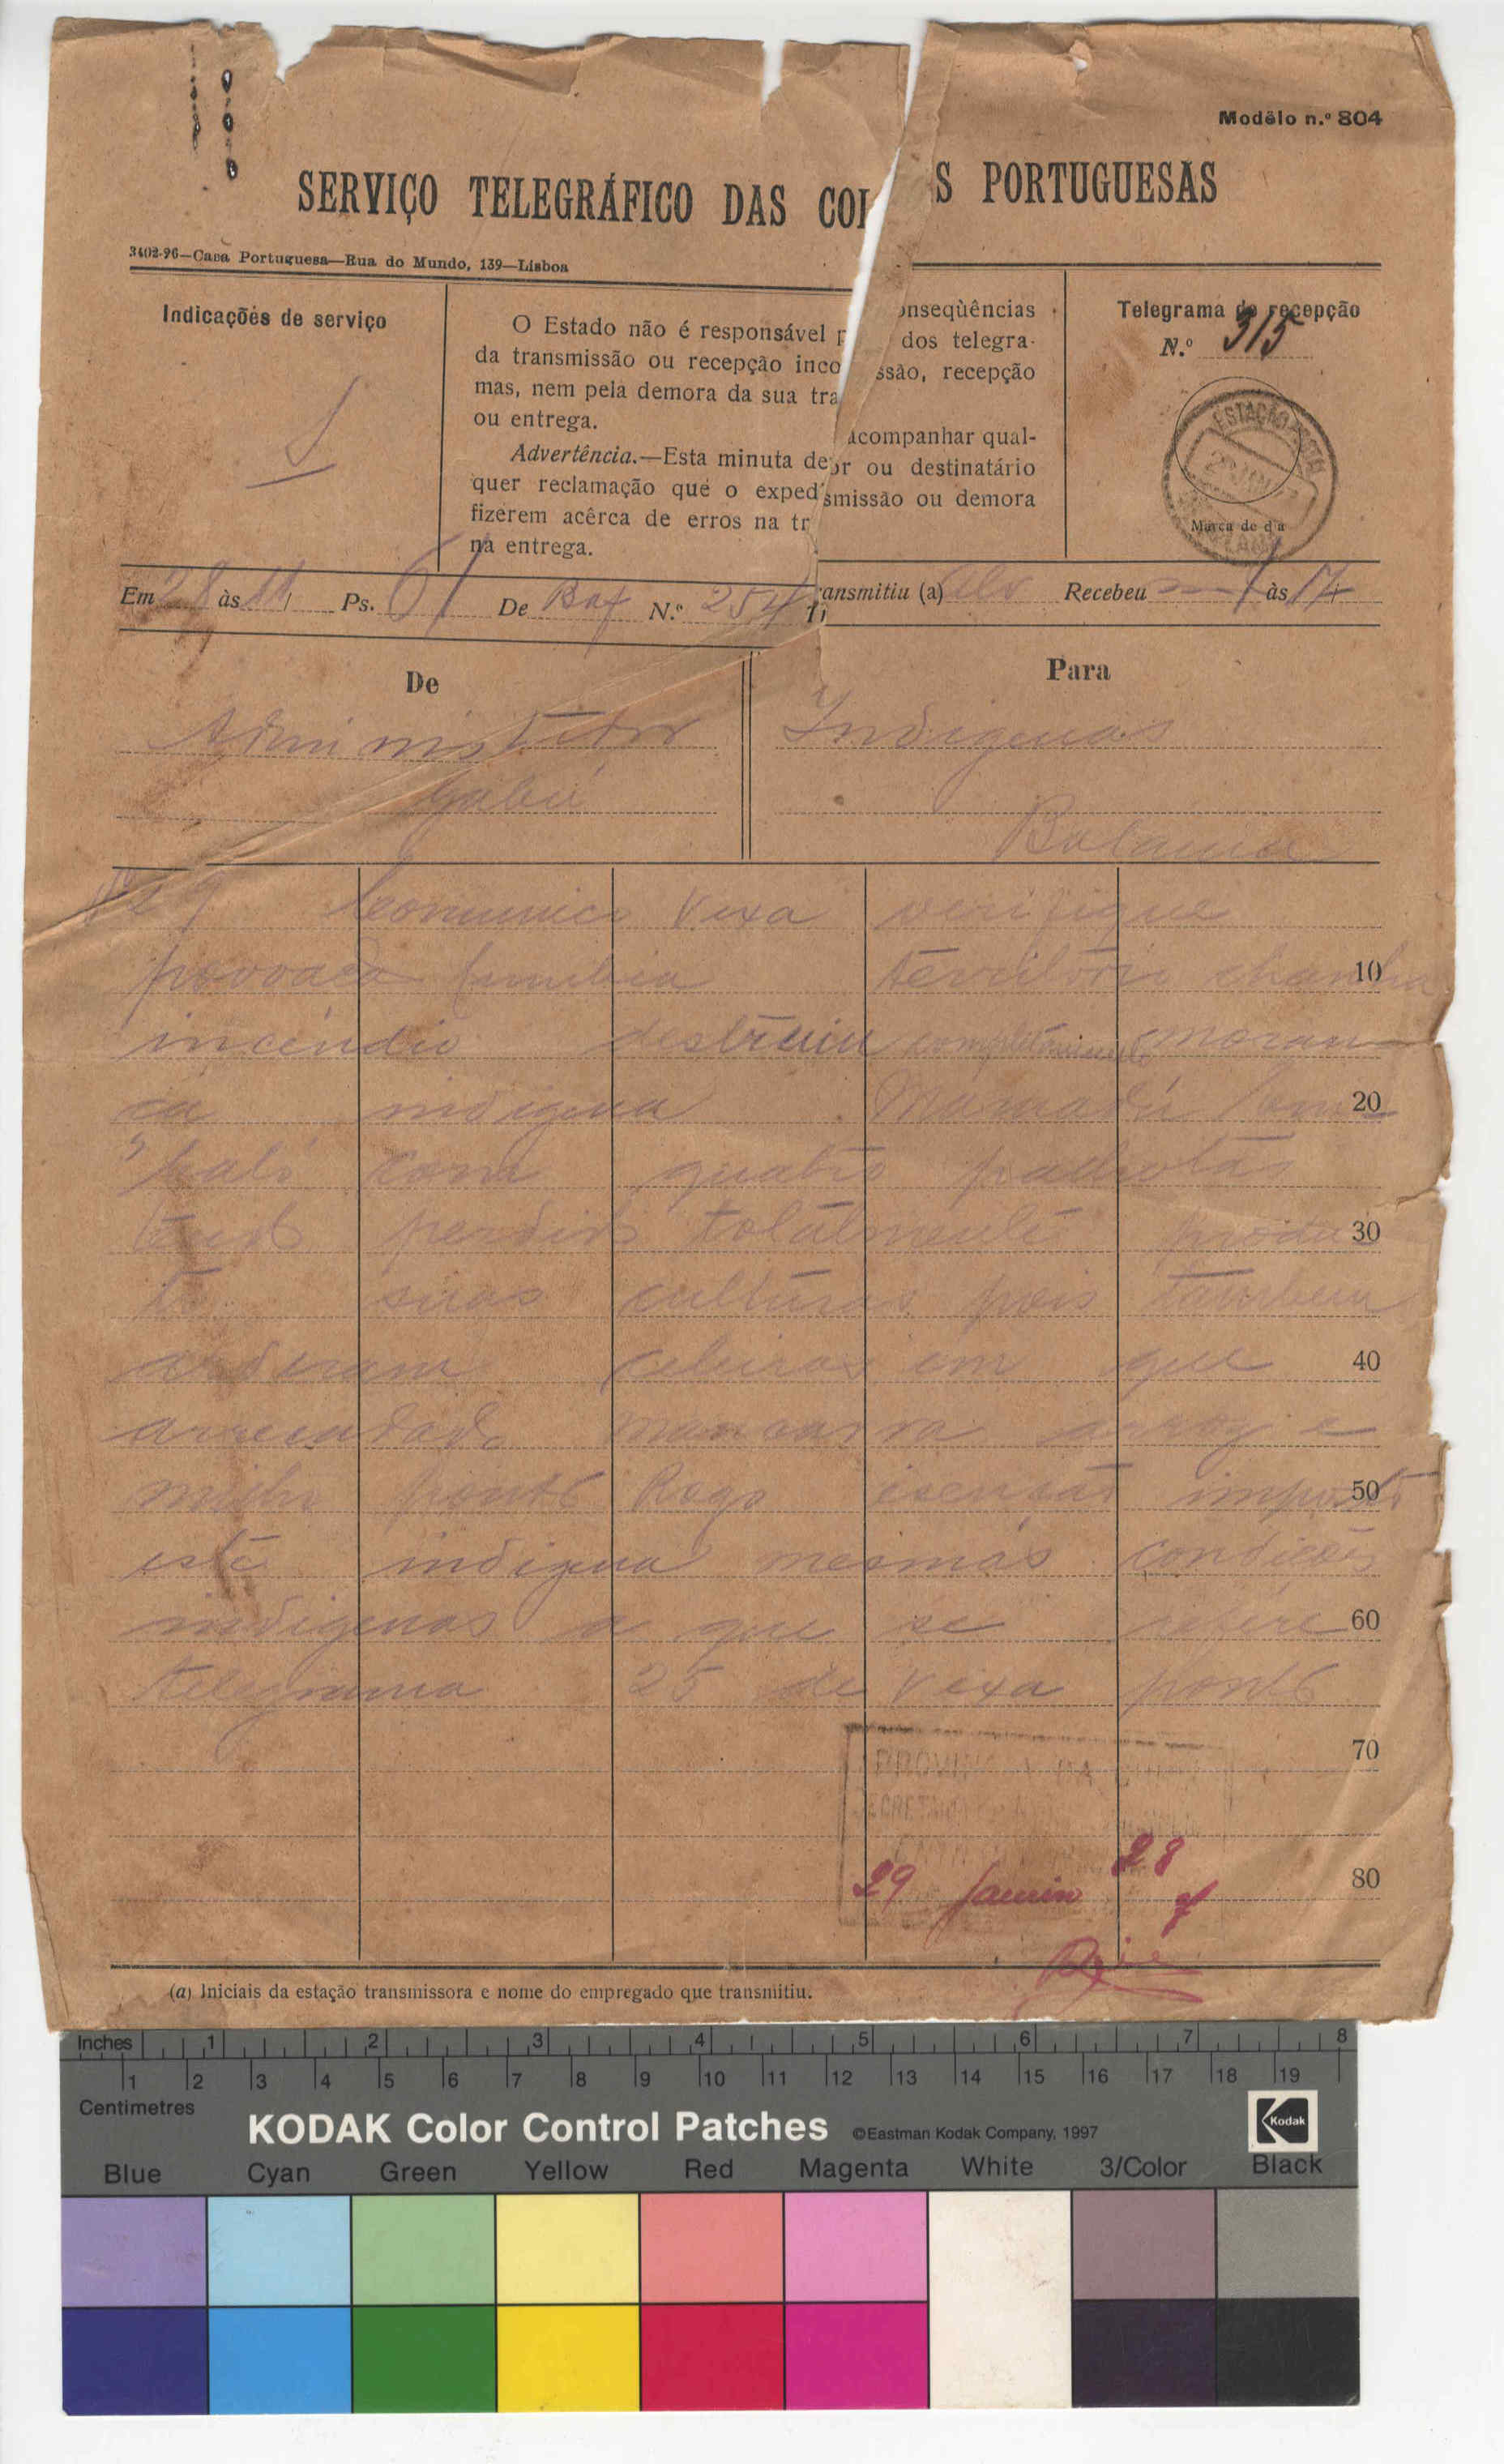 Modêlo n.º 804
SERVIÇO TELEGRÁFICO DAS COL S PORTUGUESAS
3402-96—Casa Portuguesa—Rua do Mundo, 139—Lisboa
Indicações de serviço
O Estado não é responsável p onseqùências
da transmissão ou recepção inco dos telegra-
mas, nem pela demora da sua tra ssão, recepção
ou entrega.
Advertência.—Esta minuta de acompanhar qual-
quer reclamação que o exped or ou destinatário
fizerem acêrca de erros na tr smissão ou demora
na entrega.
Telegrama de recepção
N.º 315
ESTAÇÃO POSTAL
Marca de dia
Em 28 às 11 Ps. 61 De Baf N.º 254 Transmitiu (a) Recebeu às 17
De
Administrador
Gabú
Para
Indigenas
Bolama
Comunico Vexa verifique
povoação territorio chanha
incendio destruiu completamente moran
ca indigena Mamadú
baló com quatro palhotas
tendo perdido totalmente produ
to suas culturas pois tambem
arderam celeiros em que
arrecadado mancarra arroz e
milho ponto Rogo isenção imposto
este indigena mesmas condições
indigenas a que se refere
telegrama 25 de Vexa ponto
10
20
30
40
50
60
70
80
29 Janeiro 28
(a) Iniciais da estação transmissora e nome do empregado que transmitiu.
Inches 1 2 3 4 5 6 7 8
1 2 3 4 5 6 7 8 9 10 11 12 13 14 15 16 17 18 19
Centimetres
KODAK Color Control Patches ©Eastman Kodak Company, 1997
Kodak
Blue Cyan Green Yellow Red Magenta White 3/Color Black